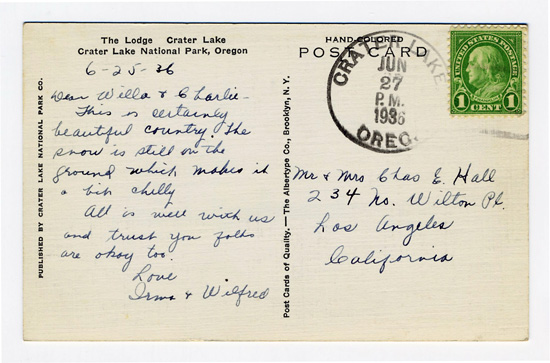 The Lodge Crater Lake
Crater Lake National Park, Oregon
6-25-36
Dear Willa & Charlie-
This is certainly
beautiful country. The
snow is still on the
ground which makes it
a bit chilly
All is well with us
and trust you folks
are okay too.
Love
Irma & Wilfred
PUBLISHED BY CRATER LAKE NATIONAL PARK CO.
Post Cards of Quality,—The Albertype Co., Brooklyn, N. Y.
HAND-COLORED
POST CARD
CRATER LAKE
JUN
27
P.M.
1936
OREG.
UNITED STATES POSTAGE
1 CENT 1
Mr & Mrs Chas E. Hall
234 No. Wilton Pl.
Los Angeles
California